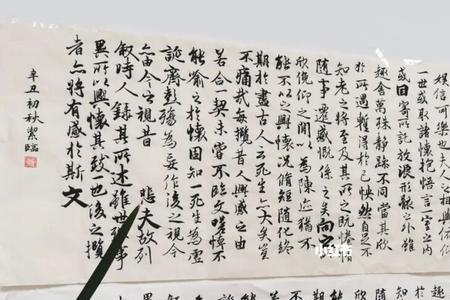 娱信可樂也夫人之相與俯仰
一世或取諸懷抱悟言一室之内
或因寄所託放浪形骸之外雖
趣舍萬殊靜躁不同當其欣
於所遇暫得於己快然自足不
知老之將至及其所之既惓
隨事遷感慨係之矣向之
欣俛仰之閒以為陳迹猶不
能不以之興懷況脩短隨化終
期於盡古人云死生亦大矣豈
不痛哉每攬昔人興感之由
若合一契未嘗不臨文嗟悼不
能喻之於懷固知一死生為虛
誕齊彭殤為妄作後之視今
亦由今之視昔悲夫故列
敘時人錄其所述雖世殊事
異所以興懷其致一也後之攬
者亦將有感於斯文
辛丑初秋絜臨
小红书